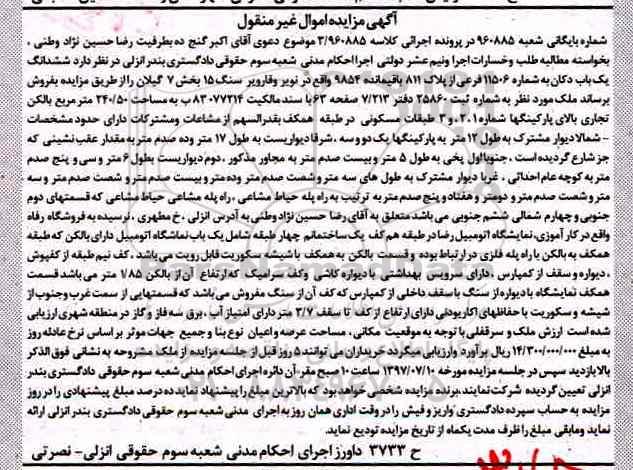 آگهی مزایده اموال غیر منقول
شماره بایگانی شعبه ۹۶۰۸۸۵ در پرونده اجرائی کلاسه ۳/۹۶۰۸۸۵ موضوع دعوی آقای اکبر گنج ده بطرفیت رضا حسین نژاد وطنی ،
بخواسته مطالبه طلب و خسارات اجرا و نیم عشر دولتی اجرا احکام مدنی شعبه سوم حقوقی دادگستری بندر انزلی در نظر دارد ششدانگ
یک باب دکان به شماره ۱۱۵۰۶ فرعی از پلاک ۸۱۱ باقیمانده ۹۸۵۴ واقع در نویر وقارویر سنگ ۱۵ بخش ۷ گیلان را از طریق مزایده بفروش
برساند ملک مورد نظر به شماره ثبت ۲۵۸۶۰ دفتر ۷/۲۱۳ صفحه ۶۳ با سند مالکیت ۸۳۰۷۷۳۱۴ ب به مساحت ۲۴۰/۵۰ متر مربع بالکن
تجاری بالای پارکینگها شماره ۱ ، ۲ و ۳ طبقات مسکونی در طبقه همکف بقدرالسهم از مشاعات ومشترکات دارای حدود مشخصات
- شمالا دیوار مشترک به طول ۱۲ متر به پارکینگها یک دو و سه ، شرقا دیواریست به طول ۱۷ متر وده صدم متر به مقدار عقب نشینی که
جز شارع گردیده است ، جنوبا اول پخی به طول ۵ متر و بیست صدم متر به مجاور مذکور ، دوم دیواریست بطول ۶ متر و سی و پنج صدم
متر به کوچه عام احداثی ، غربا دیوار مشترک به طول های سه متر وشصت صدم متر وده متر و بیست صدم متر و شصت صدم متر و سه
متر وشصت صدم متر و دومتر و هفتاد و پنج صدم متر به ترتیب به راه پله حیاط مشاعی ، راه پله مشاعی حیاط مشاعی که قسمتهای دوم
جنوبی و چهارم شمالی ششم جنوبی می باشد متعلق به آقای رضا حسین نژاد وطنی به آدرس انزلی ، خ مطهری ، نرسیده به فروشگاه رفاه
واقع در کار آموزی، نمایشگاه اتومبیل رضا در طبقه هم کف یک ساختمانم چهار طبقه شامل یک باب نماشگاه اتومبیل دارای بالکن که طبقه
همکف به بالکن با راه پله فلزی در ارتباط بوده و قسمت بالکن به همکف با شیشه سکوریت قابل رویت می باشد . کف نیم طبقه از کفپوش
، دیواره و سقف از کمپارس ، دارای سرویس بهداشتی با دیواره کاشی و کف سرامیک که ارتفاع آن از بالکن ۱/۸۵ متر می باشد قسمت
همکف نمایشگاه با دیواره از سنگ با سقف داخلی از کمپارس که کف آن از سنگ مفروش می باشد که قسمتهایی از سمت غرب و جنوب از
شیشه و سکوریت با حفاظهای اکاریودنی دارای ارتفاع از کف تا سقف ۳/۷ متر دارای امتیاز آب ، برق سه فاز و گاز در منطقه شهری ارزیابی
شده است ارزش ملک و سرقفلی با توجه به موقعیت مکانی ، مساحت عرصه واعیان نوع بنا و جمیع جهات موثر بر اساس نرخ عادله روز
به مبلغ ۱۴/۳۰۰/۰۰۰/۰۰۰ ریال برآورد وارزیابی میگردد خریداران می توانند ۵ روز قبل از جلسه مزایده از ملک مشروحه به نشانی فوق الذکر
بالا بازدید سپس در جلسه مزایده مورخه ۱۳۹۷/۰۷/۱۰ ساعت ۱۰ صبح مقر آن دائره اجرای احکام مدنی شعبه سوم حقوقی دادگستری بندر
انزلی تعیین گردیده شرکت نمایند، برنده مزایده شخصی خواهد بود که بالاترین مبلغ را پیشنهاد نماید ده درصد مبلغ پیشنهادی را در روز
مزایده به حساب سپرده دادگستری واریز و فیش را در وقت اداری همان روز به اجرای مدنی شعبه سوم حقوقی دادگستری بندر انزلی ارائه
نماید ومابقی مبلغ را ظرف مدت یکماه از تاریخ مزایده تودیع نماید.
ح ۳۷۳۳ داورز اجرای احکام مدنی شعبه سوم حقوقی انزلی- نصرتی